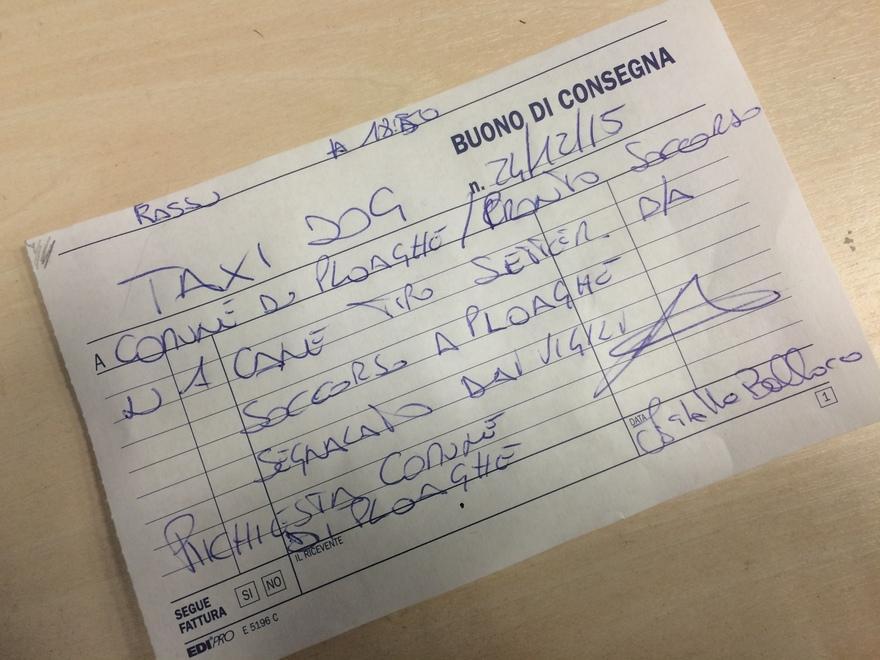 A 18:50
BUONO DI CONSEGNA
n. 24/12/15
TAXI DOG
A COMUNE DI PLOAGHE / PRONTO SOCCORSO
N 1 CANE TIPO SETTER. D/A
SOCCORSO A PLOAGHE
SEGNALATO DAI VIGILI
RICHIESTA COMUNE
DI PLOAGHE
DATA
1
IL RICEVENTE
SEGUE FATTURA SI NO
EDIPRO E 5196 C